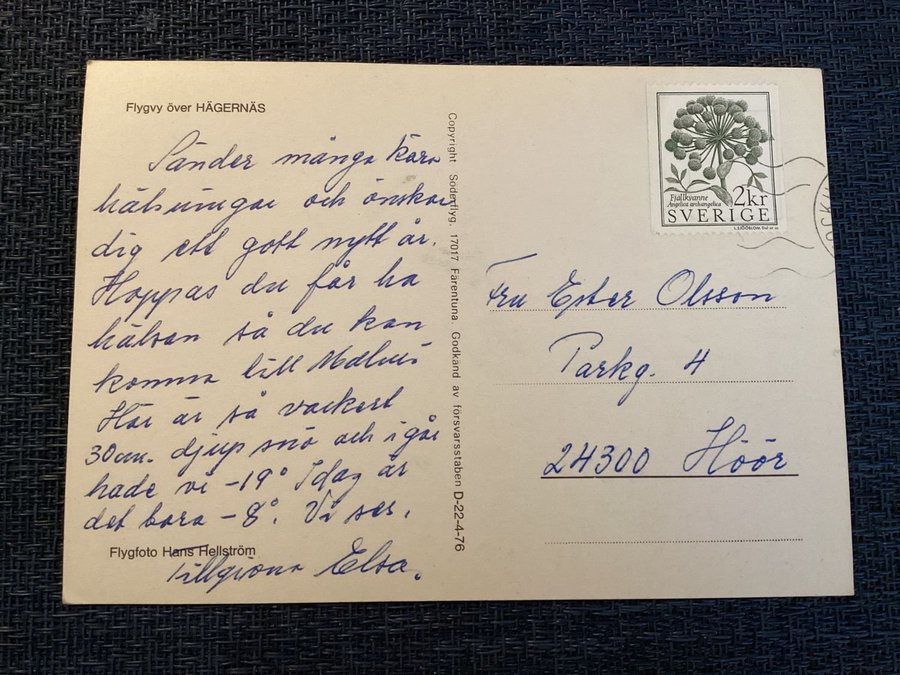 Flygvy över HÄGERNÄS
Sänder många kära
hälsningar och önskar
dig ett gott nytt år.
Hoppas du får ha
hälsan så du kan
komma till
Här är så vackert
30 cm. djup snö och igår
hade vi -19° Idag är
det bara -8°. Vi ses.
Flygfoto Hans Hellström
Tillgivna Elsa.
Copyright Söderflyg. 17017 Färentuna. Godkänd av försvarsstaben D-22-4-76
Fjällkvanne
Angelica archangelica
2kr
SVERIGE
L.SJÖÖBLOM
Fru Ester Olsson
Parkg. 4
24300 Höör